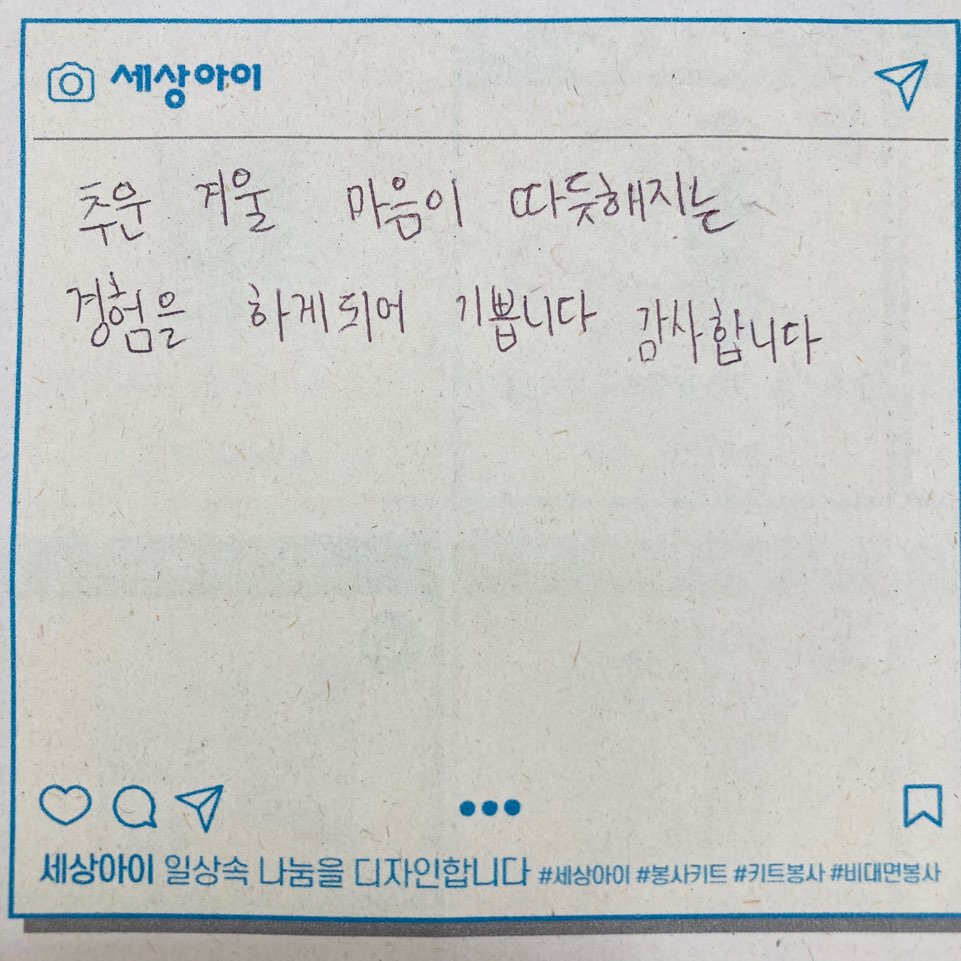 세상아이
추운 겨울 마음이 따듯해지는
경험을 하게되어 기쁩니다 감사합니다
세상아이 일상속 나눔을 디자인합니다 #세상아이 #봉사키트 #키트봉사 #비대면봉사